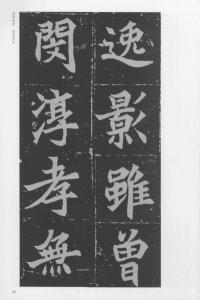 逸影雖曽
閔淳孝無